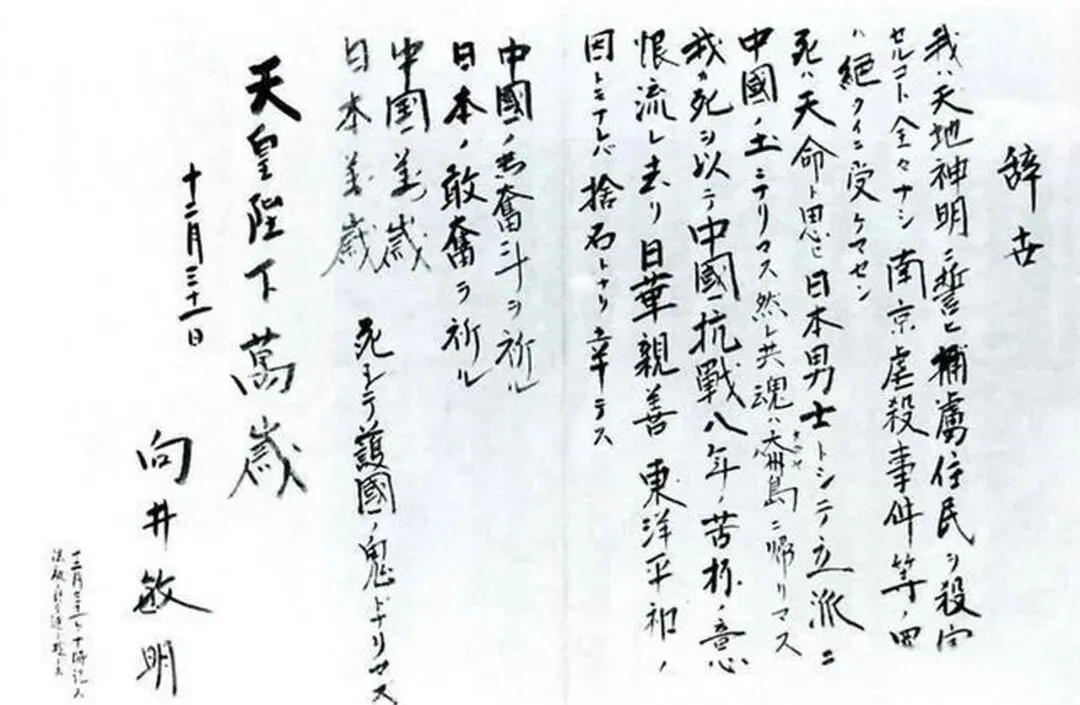 辞世
我ハ天地神明ニ誓ヒ捕虜住民ヲ殺害
セルコト全々ナシ南京虐殺事件等ノ罪
ハ絶タイニ受ケマセン
死ハ天命ト思ヒ日本男士トシテ立派ニ
中國ノ土ニナリマス然レ共魂ハ大八州島ニ帰リマス
我ガ死ヲ以テ中國抗戰八年ノ苦杯ノ意
恨流レ去リ日華親善東洋平和ノ
因トモナレバ捨石トナリ幸デス
中國ノ奮斗ヲ祈ル
日本ノ敢奮ヲ祈ル
中国萬歳
日本萬歳
死シテ護國ノ鬼トナリマス
天皇陛下萬歳
十二月三十一日
向井敏明